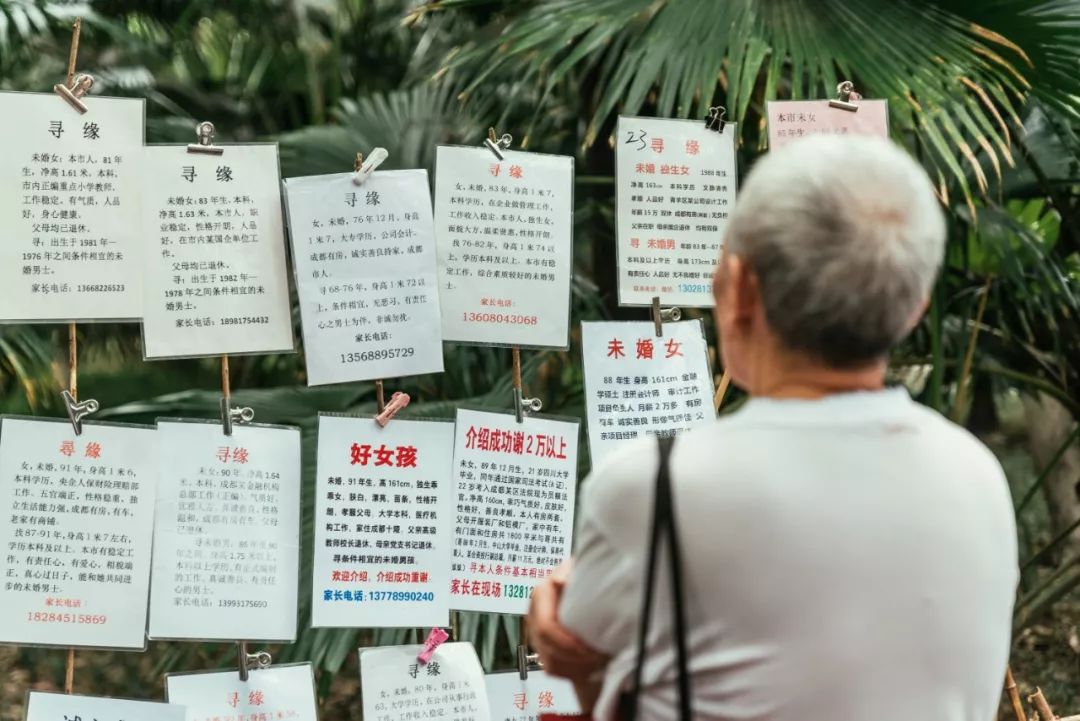 寻 缘
未婚女：本市人，81年
生，净高1.61米，本科、
市内正编重点小学教师。
工作稳定，有气质，人品
好，身心健康。
父母均已退休。
寻：出生于1981年—
1976年之间条件相宜的未
婚男士。
家长电话：13668226523
寻 缘
未婚女：83年生，本科，
净高1.63米，本市人，职
业稳定，性格开朗，人品
好，在市内某国企单位工
作。
父母均已退休。
寻：出生于1982年—
1978年之间条件相宜的未
婚男士。
家长电话：18981754432
寻 缘
女，未婚，76年12月，身高
1米7，大专学历，公司会计。
成都有房，诚实善良持家，成都
市人。
寻68-76年，身高1米72以
上，条件相宜，无恶习，有责任
心之男士为伴，非诚勿扰。
家长电话：
13568895729
寻 缘
女，未婚，83年，身高1米7，
本科，在企业做管理工作，
工作收入稳定。本市人，独生女，
面貌大方，温柔贤惠，性格开朗。
找76-82年，身高1米74以
上，本科学历，本市有稳定
工作，综合素质较好的未婚
男士。
家长电话：
13608043068
23 寻 缘
未婚 独生女 1988年生
净高163cm 本科学历
孝顺 人品好
年薪15万 双休
寻 未婚男
本科及以上学历 身高173cm及以
有责任心 人品好
1302813
本市未女
未 婚 女
88年生 身高161cm 金融
学硕士 注册会计师 审计工作
项目负责人 月薪2万多 有房
有车 诚实善良 形象气质佳 父
寻 缘
女，未婚，91年，身高1米6，
本科学历，央企人保财险理赔部
工作。五官端正，性格稳重，独
立生活能力强，成都有房，有车，
老家有商铺。
找87-91年，身高1米7左右，
学历本科及以上。本市有稳定工
作，有责任心，有爱心，相貌端
正，真心过日子，能和她共同进
步的未婚男士。
家长电话：
18284515869
寻缘
女，未婚，90年，净高1.64
米，本科，成都某金融机构
总部工作（正编），气质好，
年之间，身高1.75米以上，
本科以上学历，有正式编制
的工作，真诚善良，有责任
心的未婚男士。
家长电话：13993175690
好女孩
未婚，91年生，高161cm，独生乖
乖女，肤白，漂亮，苗条，性格开
朗，孝顺父母，大学本科，医疗机
构工作，家住成都十陵。父亲高级
教师校长退休，母亲党支书记退休。
寻条件相宜的未婚男孩。
欢迎介绍，介绍成功重谢。
家长电话：13778990240
介绍成功谢2万以上
未婚，女，89年12月生，21岁四川大学
毕业，同年通过国家司法考试（A证），
22岁考入成都某区法院现为员额法
官。净高160cm，乖巧气质好，皮肤好，
性格好，善良孝顺，本人有房两套，
父母开服装厂和铝模厂，家中有车，
有门面和住房共1800平米与哥共有
寻本人条件基本相当
家长在现场 13281
寻 缘
女，未婚，80年，身高1米
63，大学学历，在公司从事行政
寻 缘
寻 缘